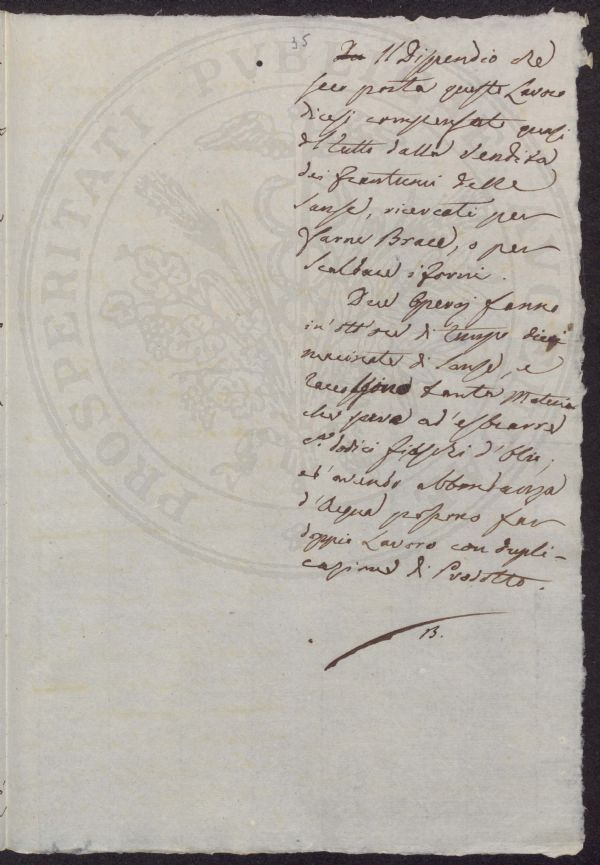 35
Il Dispendio che
seco porta questo Lavoro
dicesi compensato quasi
del tutto dalla Vendita
dei frantumi delle
Sanse, ricercati per
farne Brace, o per
Scaldare i forni.
Due Operaj fanno
in ott'ore di tempo dieci
macinate di Sanse, e
tanta Materia
che ad'estrarre
dodici fiaschi d'Olio,
ed'avendo abbondanza
d'Acqua possono far
doppio Lavoro con dupli-
cazione di Prodotto.
B.
PROSPERITATI PVBLI